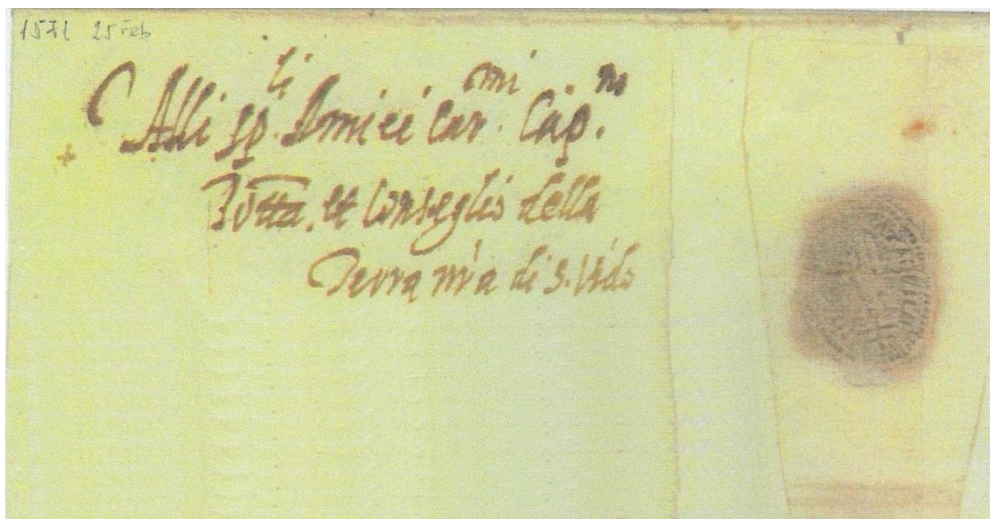 1571 25 Feb
Alli sp.li Amici car.mi Cap.no
Potta. et Conseglio della
Terra nr̃a di S. Vido